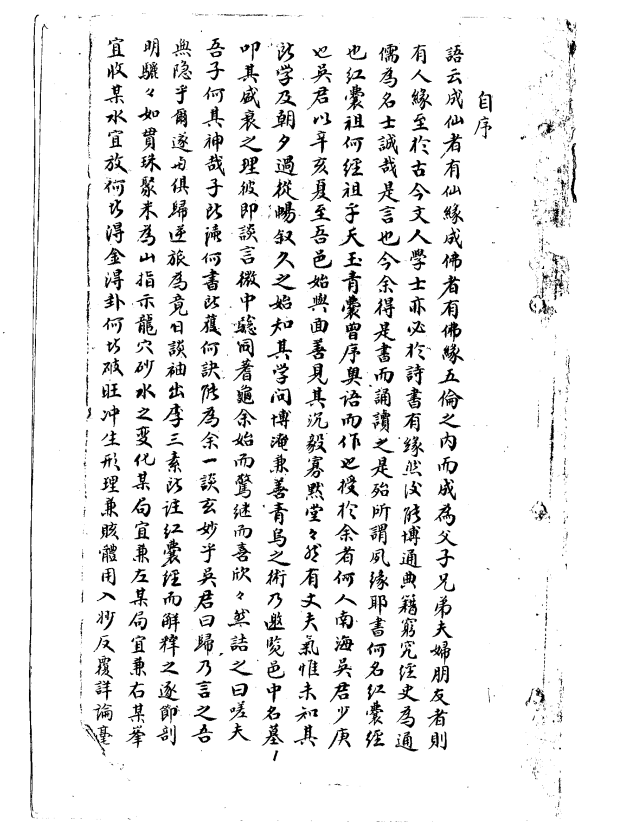 自序
語云成仙者有仙緣成佛者有佛緣五倫之內而成為父子兄弟夫婦朋友者則
有人緣至於古今文人學士亦必於詩書有緣然後能博通典籍窮究經史為通
儒為名士誠哉是言也今余得是書而誦讀之是殆所謂夙緣耶書何名紅囊經
也紅囊祖何經祖乎天玉青囊曾序奧语而作也授於余者何人南海吳君少庚
也吳君以辛亥夏至吾邑始與面善見其沉毅寡默堂々然有丈夫氣惟未知其
所学及朝夕過從暢叙久之始知其学问博淹兼善青烏之術乃邀览邑中名墓
叩其盛衰之理彼即談言微中驗同蓍龜余始而驚继而喜欣々然詰之曰嗟夫
吾子何其神哉子所讀何書所獲何訣能為余一談玄妙乎吳君曰歸乃言之吾
無隐乎爾遂与俱歸逆旅為竟日談袖出李三素所註紅囊經而解释之逐節剖
明驪々如貫珠聚米為山指示龍穴砂水之变化某局宜兼左某局宜兼右某峯
宜收某水宜放何以得金得卦何以破旺冲生形理兼賅體用入妙反覆詳論毫